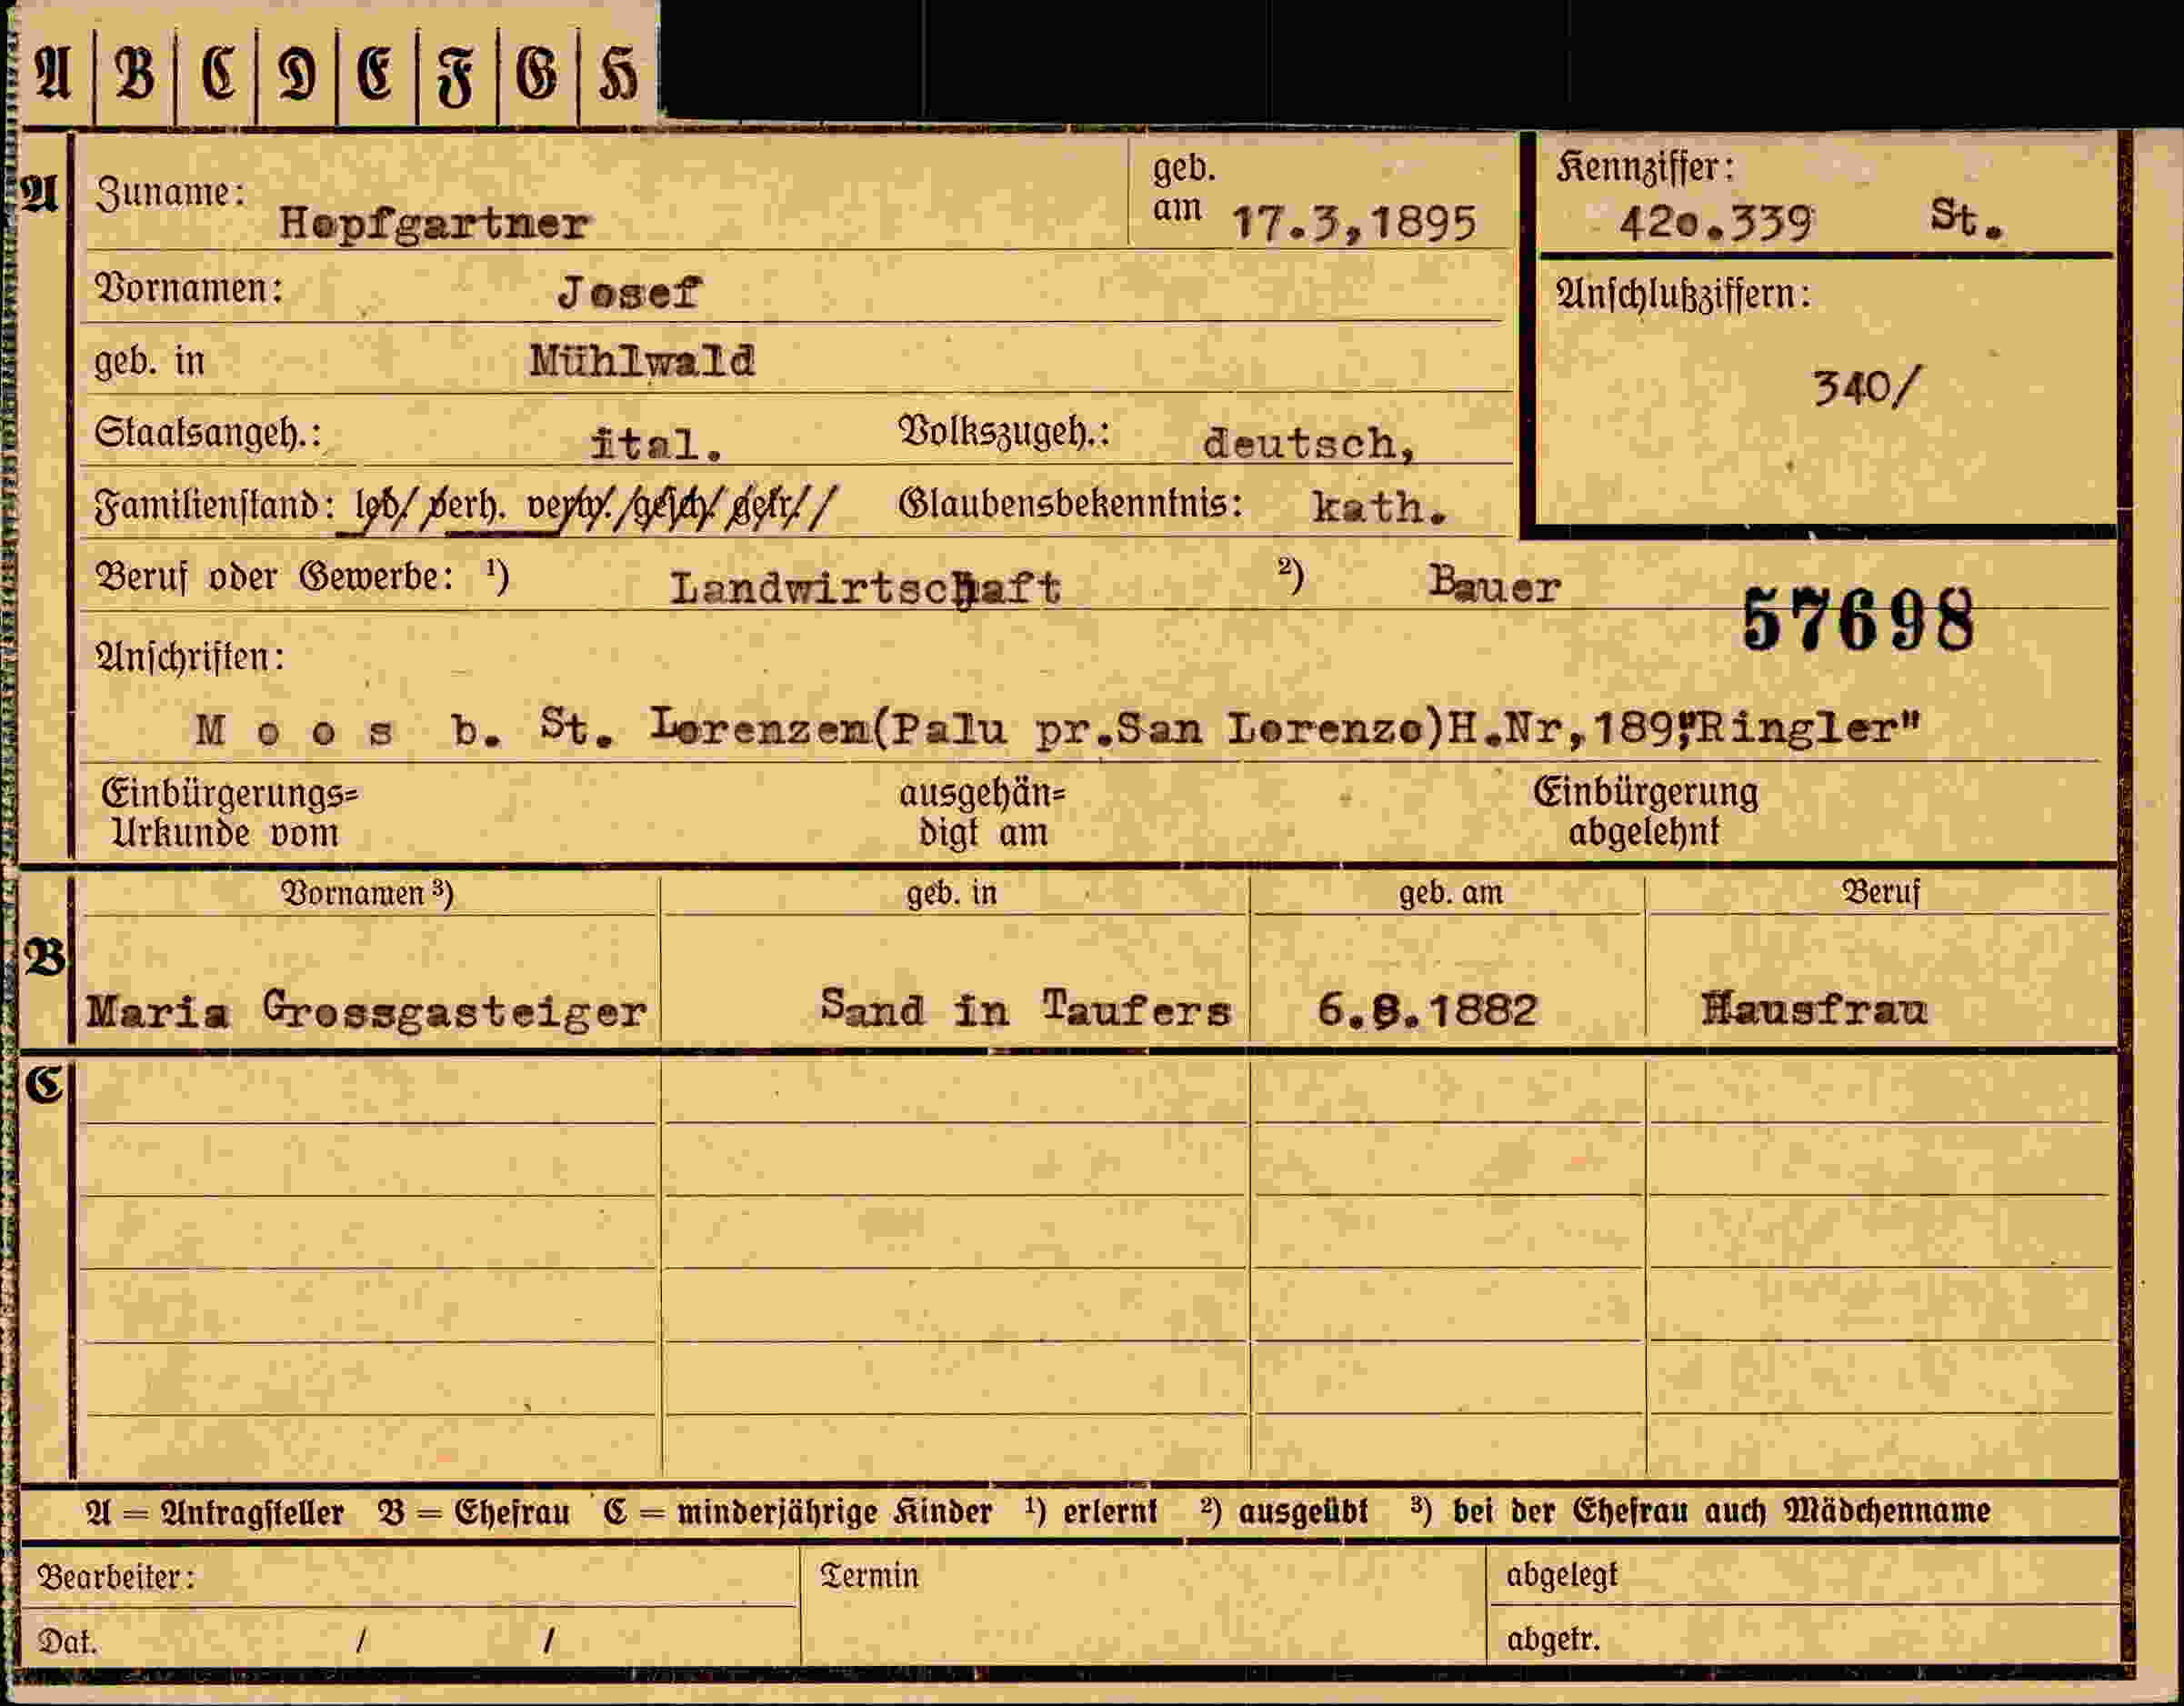 A | B | C | D | E | F | G | H
A
Zuname: Hopfgartner
geb. am 17.3,1895
Kennziffer:
420.339 St.
Vornamen: Josef
Anschlußziffern:
340/
geb. in Mühlwald
Staatsangeh.: ital. Volkszugeh.: deutsch,
Familienstand: led/ verh. verw./ gesch/ getr// Glaubensbekenntnis: kath.
Beruf oder Gewerbe: ¹) Landwirtschaft ²) Bauer
57698
Anschriften:
M o o s b. St. Lorenzen(Palu pr.San Lorenzo)H.Nr,189,"Ringler"
Einbürgerungs= ausgehän= Einbürgerung
Urkunde vom digt am abgelehnt
B
Vornamen ³) geb. in geb. am Beruf
Maria Grossgasteiger Sand in Taufers 6.8.1882 Hausfrau
C
A = Antragsteller B = Ehefrau C = minderjährige Kinder ¹) erlernt ²) ausgeübt ³) bei der Ehefrau auch Mädchenname
Bearbeiter: Termin abgelegt
Dat. / / abgetr.